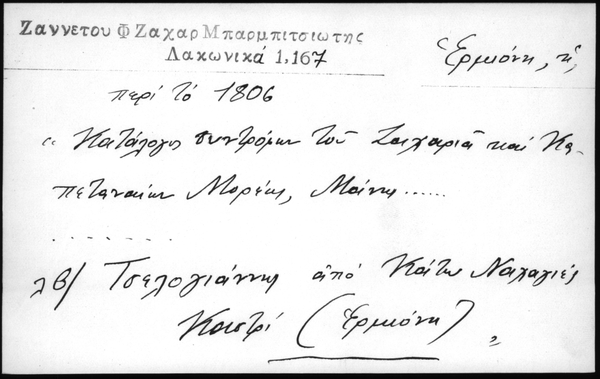 Ζαννετου Φ Ζαχαρ Μπαρμπιτσιωτης
Λακωνικά 1,167
Ἑρμιόνη, ἡ
περί τό 1806
“ Κατάλογος συντρόφων τοῦ Ζαχαριᾶ καί Κα-
πεταναίων Μορέως, Μάνης ......
. . . . . . .
λβ/ Τσελογιάννης ἀπό Κάτω
Καστρί (Ἑρμιόνη) „